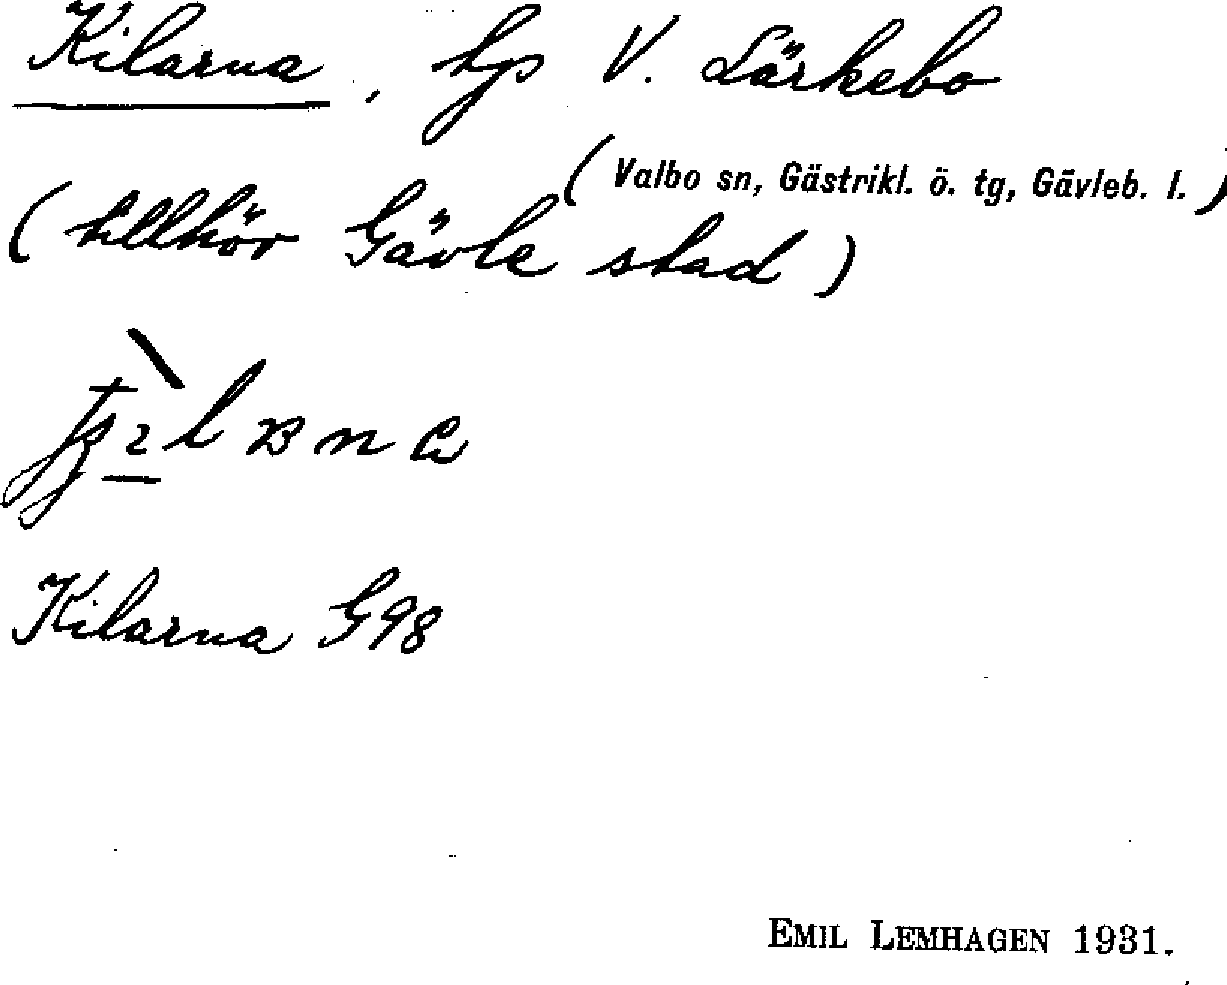 Kilarna, lp V. Lärkebo
(Valbo sn, Gästrikl. ö. tg, Gävleb. l.)
(tillhör Gävle stad)
Kilarna G98
EMIL LEMHAGEN 1931.